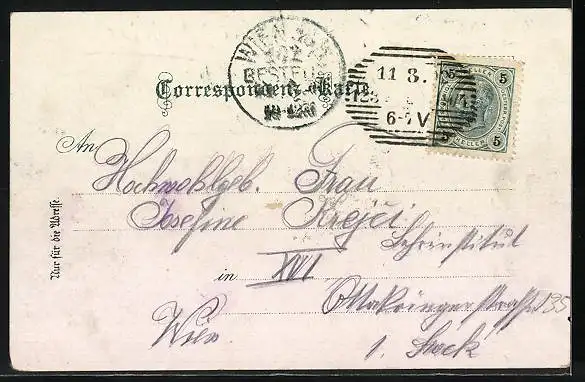 WIEN
BESTELLT
Correspondenz-Karte
11 3.
6-7 V
5 5
HELLER
5 5
An
Hochwohlgeb. Frau
Josefine Krejči
Lehrinstitut
in XVI
Ottakringerstrasse 135
Wien
1. Stock
Nur für die Adresse